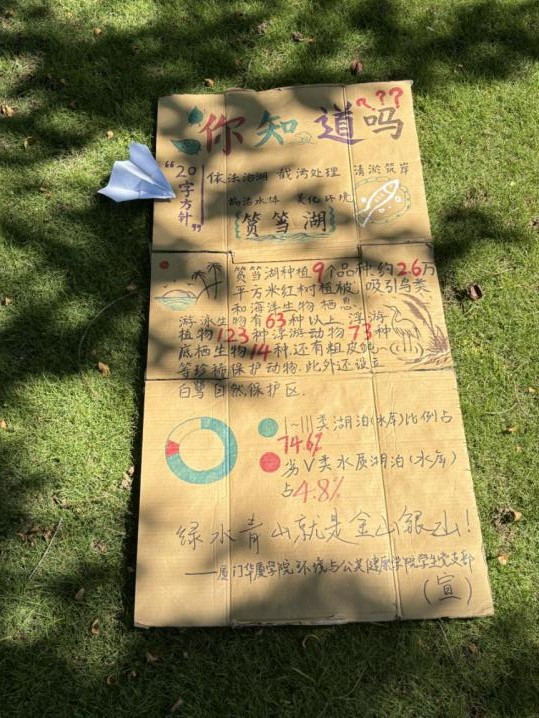 你知道吗???
"20字方针"
依法治湖 截污处理 清淤筑岸
搞活水体 美化环境
筼筜湖
筼筜湖种植9个品种、约2.6万
平方米红树植被,吸引鸟类
和海洋生物栖息
游泳生物有63种以上,浮游
植物123种浮游动物73种
底栖生物14种还有粗皮鲀
等珍稀保护动物.此外还设立
白鹭自然保护区.
I~III类湖泊(水库)比例占
74.6%
劣V类水质湖泊(水库)
占4.8%
绿水青山就是金山银山!
——厦门华厦学院环境与公共健康学院学生党支部
(宣)